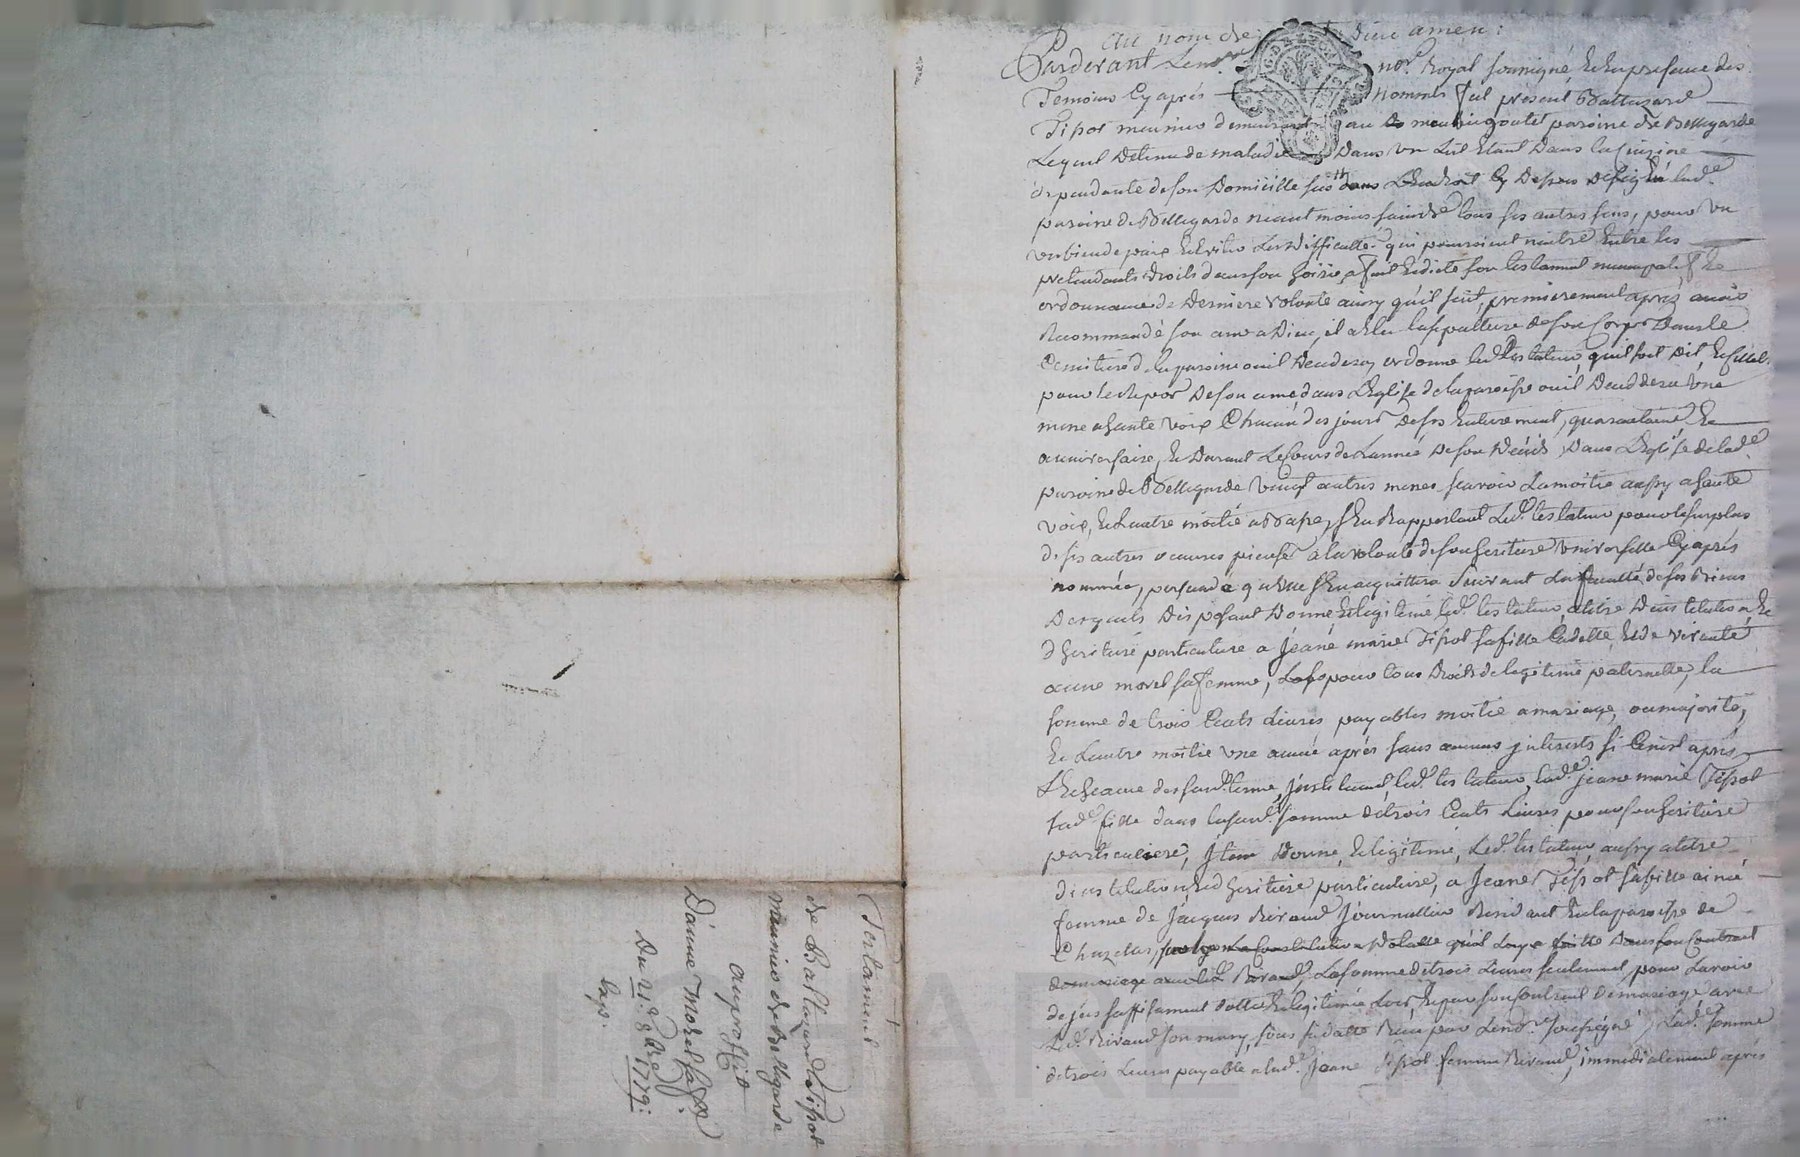 au nom de dieu amen:
Pardevant Le nore nore Royal soussigné, et en presence des
Temoins Cy après nommés fut present Baltazard
Tissot meunier demeurant au moulin goutet paroisse de Bellegarde
Lequel Detenu de maladie Dans un Lit Etant Dans la Cuizine
dependante de son Domicille sus dans L'Endroit Cy Dessus Ladte
paroisse de Bellegarde neant moins sain de tous ses autres sens, pour un
un bien de paix Et Eviter Les Difficultés qui pouroient naitre Entre les
pretendants droits dans son hoirie, a fait Et dicté son testament nuncupatif Et
ordonnance de Derniere volonté ainsy qu'il suit, premierement après avoir
Recommandé son ame a Dieu, il a Elu la sepulture de son Corps Dans le
Cemitiere de la paroisse ou il Decedera, ordonne led. Testateur, quil soit Dit Et
pour le Repos De son ame, dans L'Eglise de la paroisse ou il Decedera Une
messe a haute voix Chacun des jours De ses Enterrement, quarantaine Et
anniversaire, Et Durant Le Cours de L'année De son Décès, Dans L'Eglise de lade
paroisse de Bellegarde Vingt autres messes, scavoir La moitié aussy a haute
voix, Et L'autre moitié a basse, s'En Rapportant Led. testateur pour le surplus
de ses autres oeuvres pieuses a la volonté de son heritiere Universelle Cy après
nommée, persuadé qu'Elle s'En acquittera Suivant La faculté de ses Biens
Desquels Disposant Donne Et legitime led. testateur a titre D'institution Et
d'heritiere particuliere a Jeane marie Tissot sa fille Cadette, Et de vivante
anne morel sa femme, pour tous Droits de legitime paternelle, la
somme de trois Cents Livres payables moitié a mariage, ou majorité,
Et L'autre moitié une année après sans aucuns interests si Ce n'est après
L'Echeance desd. terme, instituant, led. testateur, lade jeane marie Tissot
sade fille dans lad. somme de trois Cents Livres pour son heritiere
particuliere, Item Donne, Et legitime, Led. testateur, aussy a titre
D'institution Et d'heritiere particuliere, a Jeane Tissot sa fille ainée
femme de Jacques Giraud Journallier Residant En la paroisse de
Chazelas, La Constitution Dotalle qu'il Luy a faitte Dans son Contrat
de mariage avec led. Giraud, La somme de trois Livres seulement, pour L'avoir
dejas suffisament dottée Et legitimée Lors Et par son Contrat de mariage avec
Led. Giraud son mary, sous sa datte Reçu par Led. nore soussigné, Lade somme
de trois Livres payable a lade Jeane Tissot femme Giraud, immediatement après
Testament
de Baltazard Tissot
meunier de Bellegarde
au proffit
D'anne Morel sa fe
Du 21e 8bre 1779: